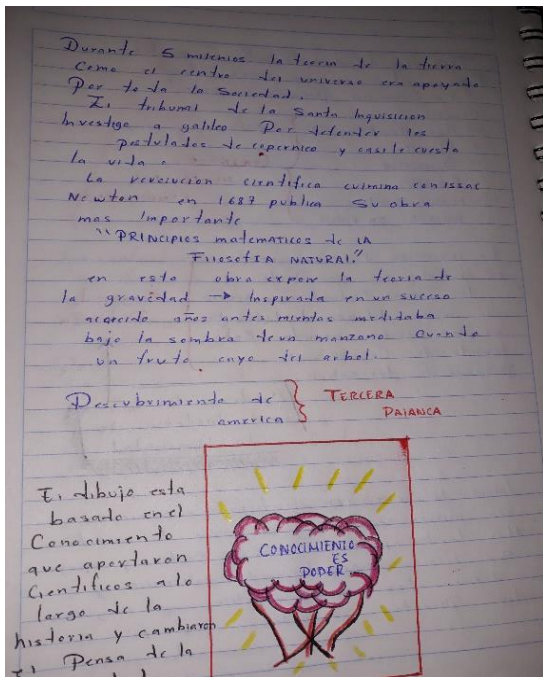 Durante 5 milenios la teoria de la tierra
como el centro del universo era apoyado
Por toda la Sociedad.
El tribunal de la Santa Inquisicion
Investigo a galileo Por defender los
postulados de copernico y casi le cuesta
la vida.
La revolucion cientifica culmina con Issac
Newton en 1687 publica su obra
mas importante
"PRINCIPIOS matematicos de LA
FILOSOFIA NATURAL."
en esta obra expone la teoria de
la gravedad → Inspirada en un suceso
acaecido años antes mientas meditaba
bajo la sombra de un manzano cuando
un fruto cayo del arbol.
Descubrimiento de
america } TERCERA
PALANCA
El dibujo esta
basado en el
Conocimiento
que aportaron
Cientificos a lo
largo de la
historia y cambiaron
El Pensa de la
CONOCIMIENTO
ES
PODER